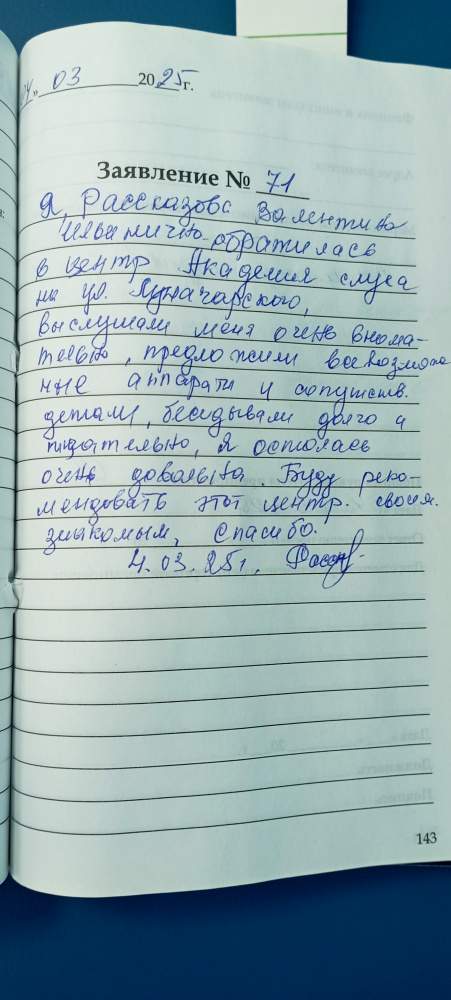 04 » 03 2025 г.
Заявление № 71
Я, Рассказова Валентина
Ильинична обратилась
в центр Академия слуха
на ул. Луначарского,
выслушали меня очень внема-
тельно, предложили всевозмож
ные аппараты и сопутств.
детали, беседывали долго и
тщательно, я осталась
очень довольна. Буду реко-
мендовать этот центр. своим.
знакомым, Спасибо.
4.03.25г.
143